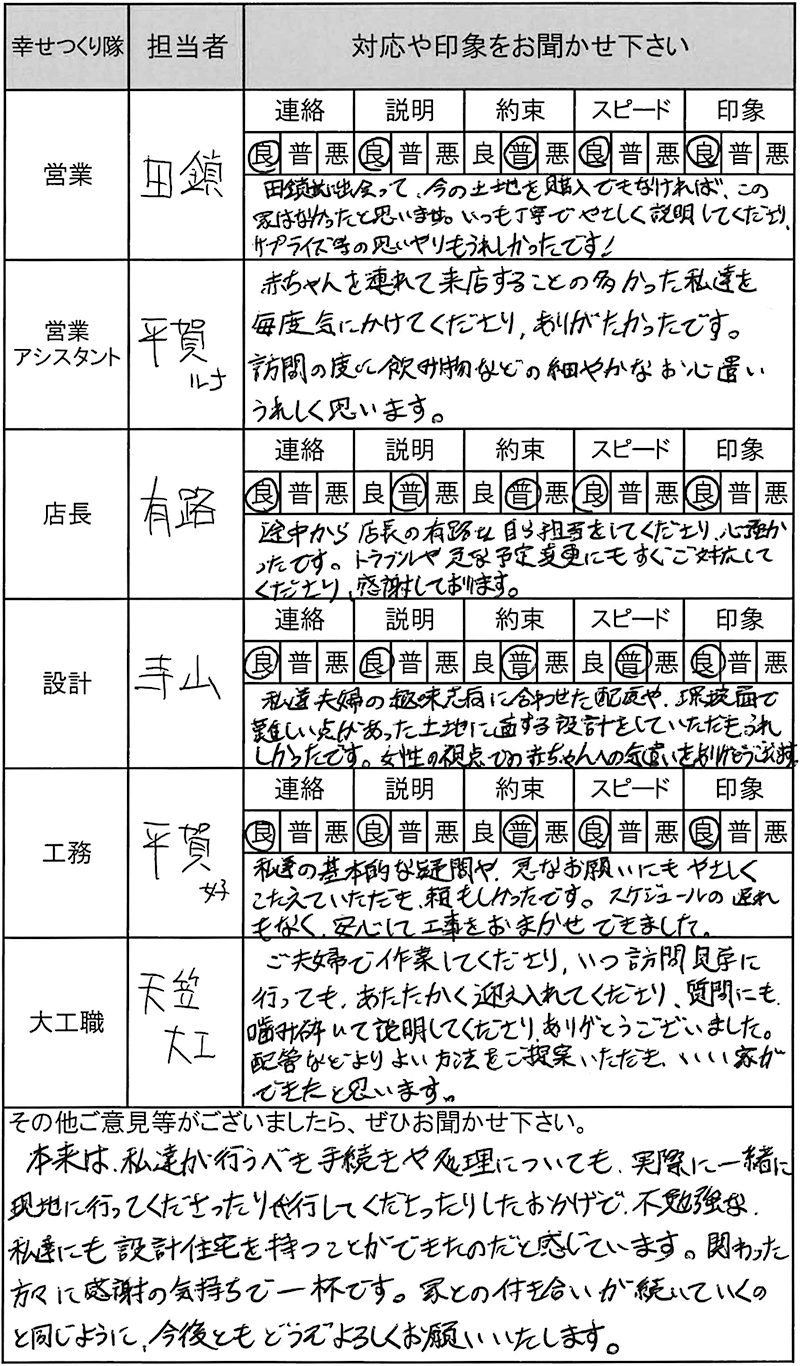 幸せつくり隊 担当者 対応や印象をお聞かせ下さい
営業 田鎖
連絡 説明 約束 スピード 印象
良 普 悪 良 普 悪 良 普 悪 良 普 悪 良 普 悪
田鎖さんに出会って、今の土地を購入でもなければ、この
家はなかったと思います。いつも丁寧でやさしく説明してくださり、
サプライズ等の思いやりもうれしかったです！
営業
アシスタント
平賀
ルナ
赤ちゃんを連れて来店することの多かった私達を
毎度気にかけてくださり、ありがたかったです。
訪問の度に飲み物などの細やかなお心遣い
うれしく思います。
店長 有路
連絡 説明 約束 スピード 印象
良 普 悪 良 普 悪 良 普 悪 良 普 悪 良 普 悪
途中から店長の有路さん自ら担当をしてくださり、心強か
ったです。トラブルや急な予定変更にもすぐご対応して
くださり、感謝しております。
設計 寺山
連絡 説明 約束 スピード 印象
良 普 悪 良 普 悪 良 普 悪 良 普 悪 良 普 悪
私達夫婦の趣味志向に合わせた配慮や、環境面で
難しい点があった土地に適する設計をしていただきうれ
しかったです。女性の視点での赤ちゃんへの気遣いをありがとうございます
工務 平賀
好
連絡 説明 約束 スピード 印象
良 普 悪 良 普 悪 良 普 悪 良 普 悪 良 普 悪
私達の基本的な疑問や、急なお願いにもやさしく
こたえていただき、頼もしかったです。スケジュールの遅れ
もなく、安心して工事をおまかせできました。
大工職 天笠
大工
ご夫婦で作業してくださり、いつ訪問見学に
行っても、あたたかく迎え入れてくださり、質問にも
噛み砕いて説明してくださりありがとうございました。
配管などよりよい方法をご提案いただき、いい家が
できたと思います。
その他ご意見等がございましたら、ぜひお聞かせ下さい。
本来は、私達が行うべき手続きや処理についても、実際に一緒に
現地に行ってくださったり代行してくださったりしたおかげで、不勉強な、
私達にも設計住宅を持つことができたのだと感じています。関わった
方々に感謝の気持ちで一杯です。家との付き合いが続いていくの
と同じように、今後ともどうぞよろしくお願いいたします。